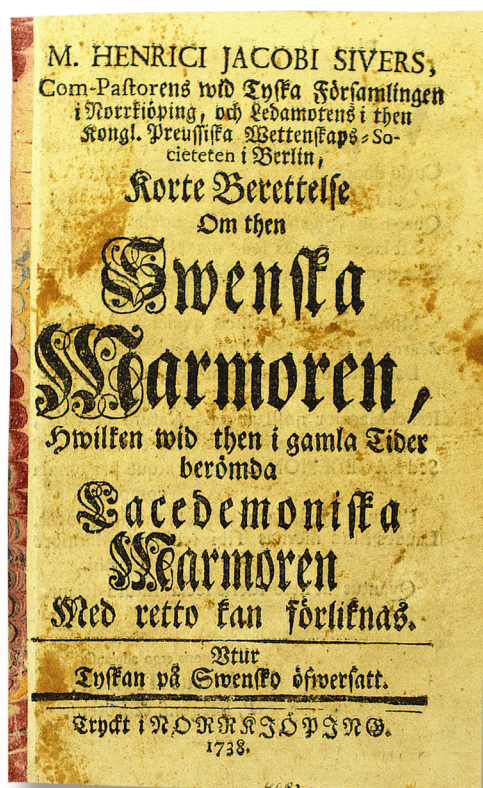 M. HENRICI JACOBI SIVERS,
Com-Pastorens wid Tyska Församlingen
i Norrkiöping, och Ledamotens i then
Kongl. Preussiska Wettenskaps-So-
cieteten i Berlin,
Korte Berettelse
Om then
Swenska
Marmoren,
Hwilken wid then i gamla Tider
berömda
Lacedemoniska
Marmoren
Med retto kan förliknas.
Utur
Tyskan på Swensko öfwersatt.
Tryckt i NORRKJÖPJNG.
1738.